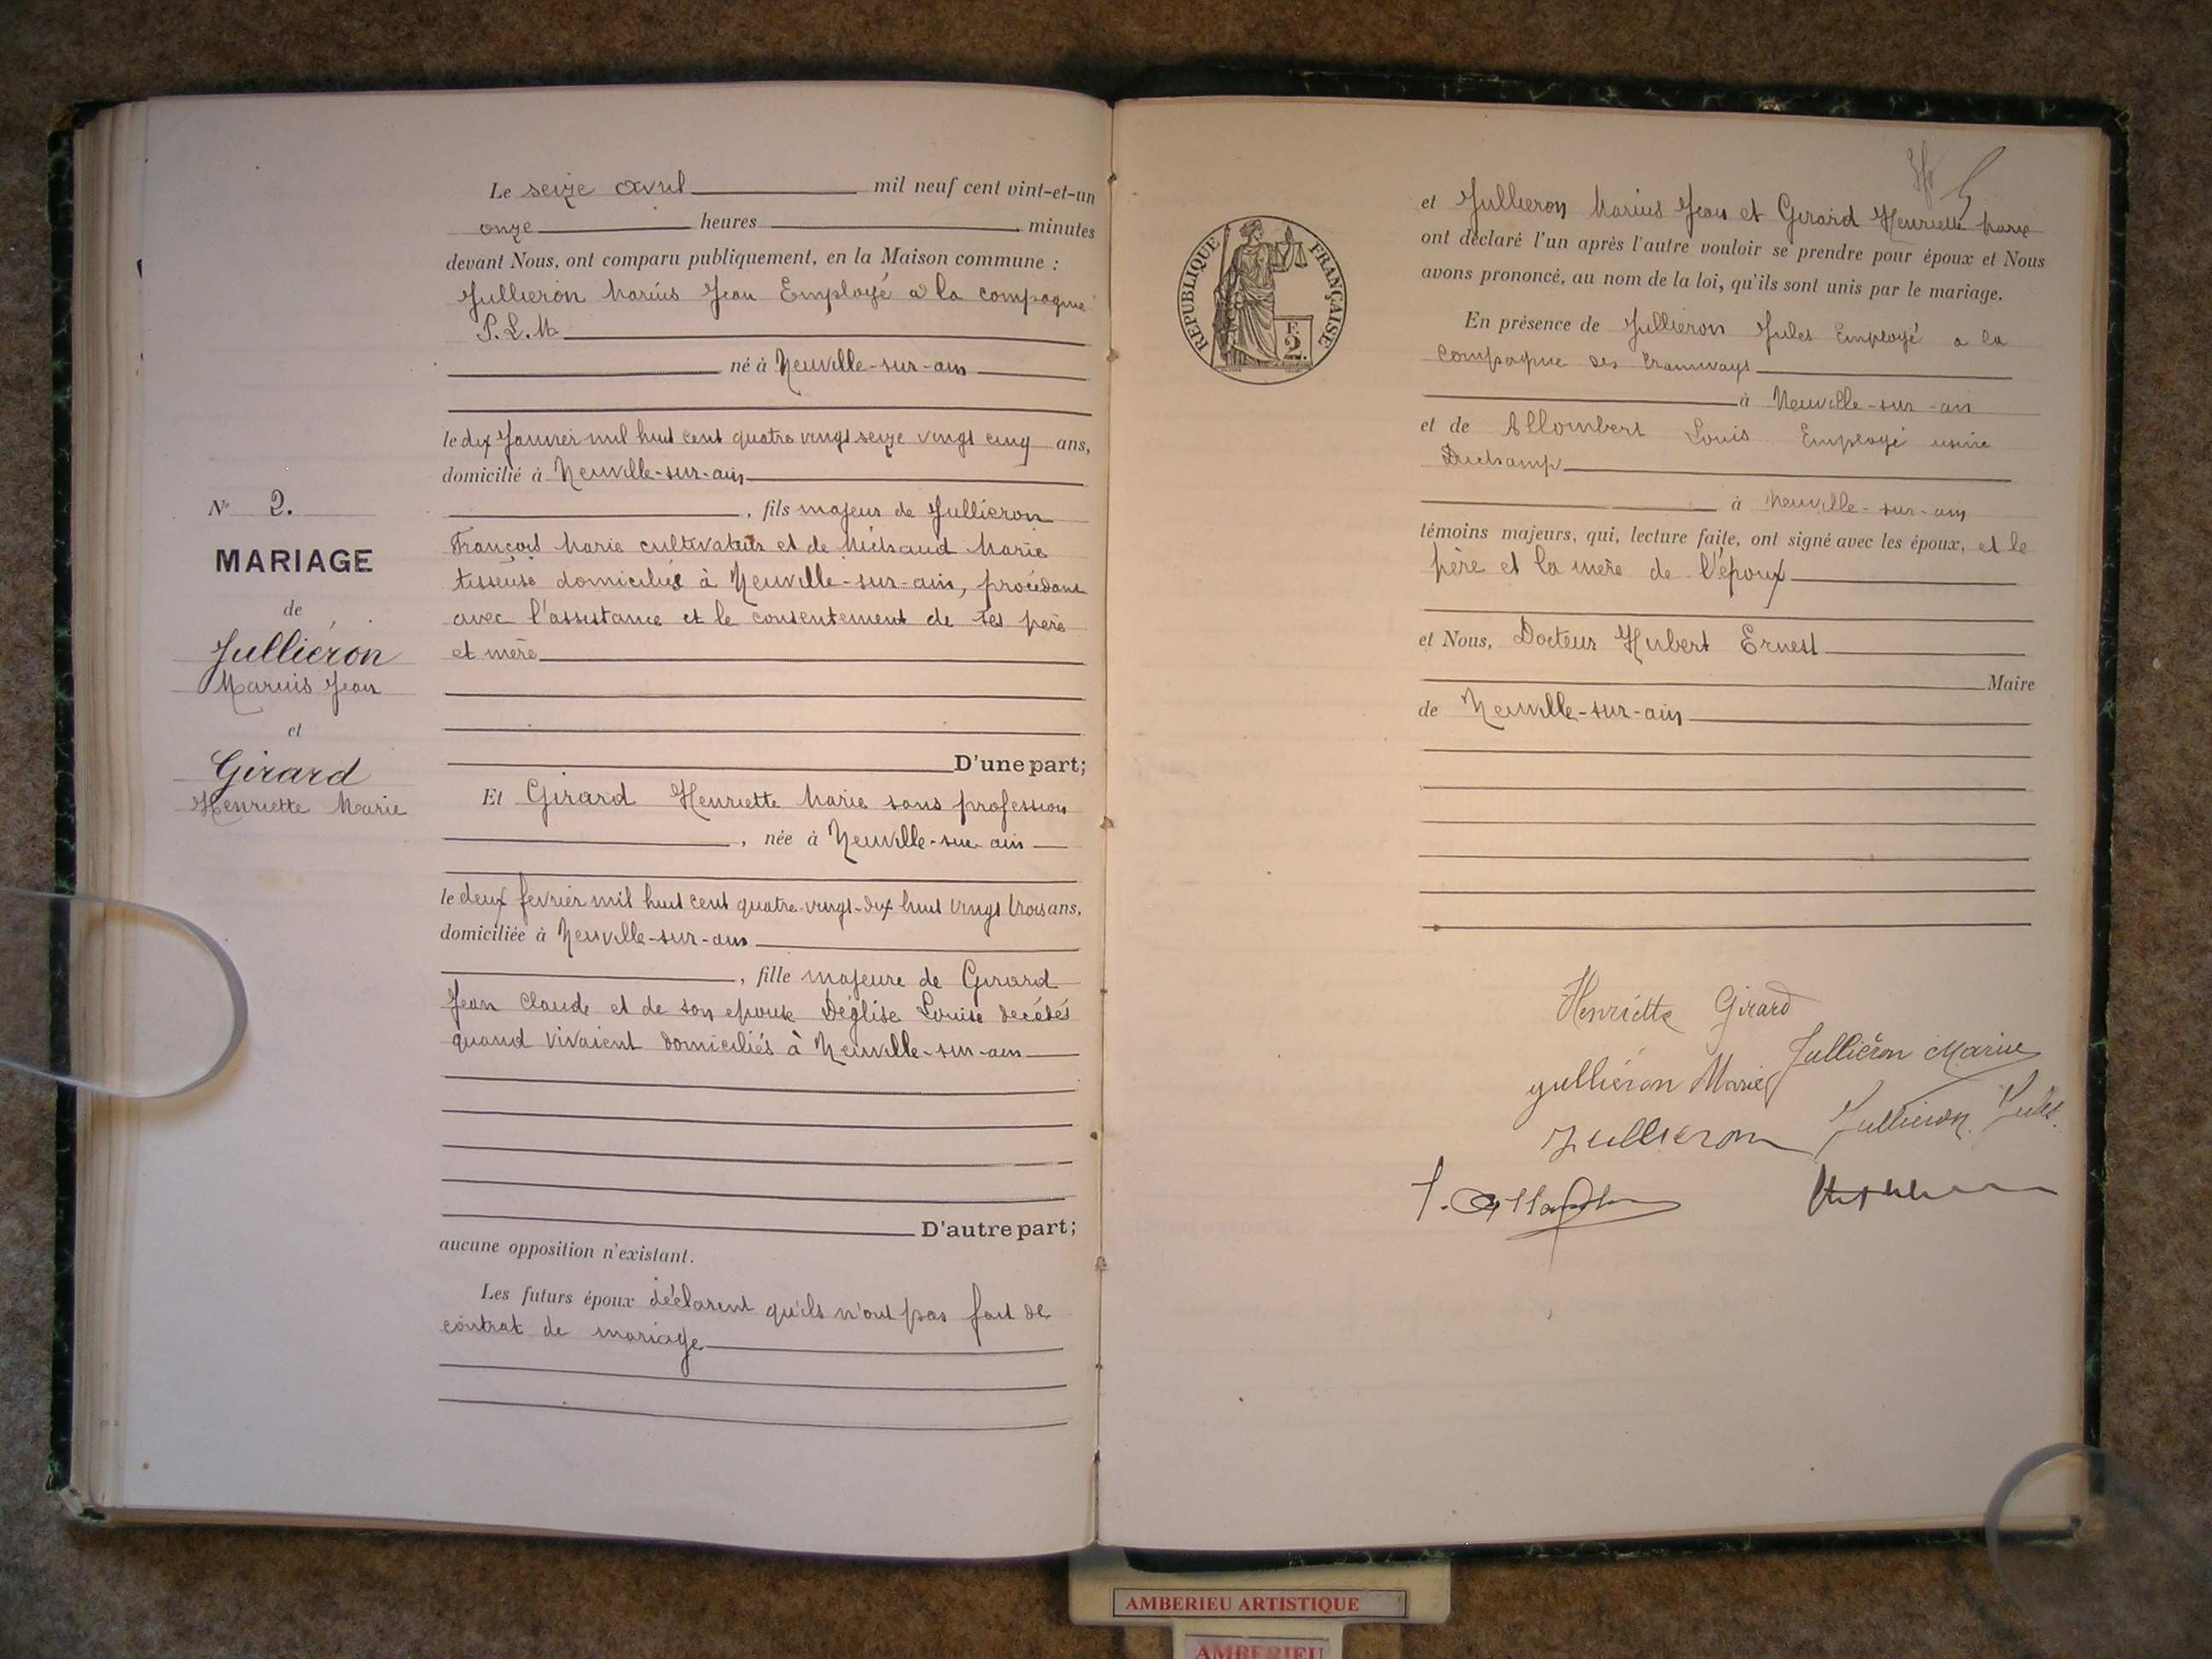 Le seize avril mil neuf cent vint-et-un
onze heures minutes
devant Nous, ont comparu publiquement, en la Maison commune :
Jullieron Marius Jean Employé a la compagnie
P.L.M
né à Neuville-sur-ain
le dix Janvier mil huit cent quatre vingt seize vingt cinq ans,
domicilié à Neuville-sur-ain
, fils majeur de Jullieron
François Marie cultivateur et de Michaud Marie
tisseuse domiciliés à Neuville-sur-ain, procédant
avec l'assistance et le consentement de ses père
et mère
D'une part;
Et Girard Henriette Marie sans profession
, née à Neuville-sur-ain
le deux fevrier mil huit cent quatre-vingt-dix huit vingt trois ans,
domiciliée à Neuville-sur-ain
, fille majeure de Girard
Jean Claude et de son epouse Déglise Louise decédés
quand vivaient domiciliés à Neuville-sur-ain
D'autre part;
aucune opposition n'existant.
Les futurs époux déclarent qu'ils n'ont pas fait de
contrat de mariage
N° 2.
MARIAGE
de
Julliéron
Marius Jean
et
Girard
Henriette Marie
RÉPUBLIQUE FRANÇAISE
F.
2.
et Jullieron Marius Jean et Girard Henriette Marie
ont déclaré l'un après l'autre vouloir se prendre pour époux et Nous
avons prononcé, au nom de la loi, qu'ils sont unis par le mariage.
En présence de Jullieron Jules Employé a la
compagnie des tramways
à Neuville-sur-ain
et de Allombert Louis Employé usine
Duchamp
à Neuville-sur-ain
témoins majeurs, qui, lecture faite, ont signé avec les époux, et le
père et la mère de l'époux
et Nous, Docteur Hubert Ernest
Maire
de Neuville-sur-ain
Henriette Girard
Julliéron Marius
Julliéron Marie
Jullieron
Jullieron Jules
AMBERIEU ARTISTIQUE
AMBERIEU